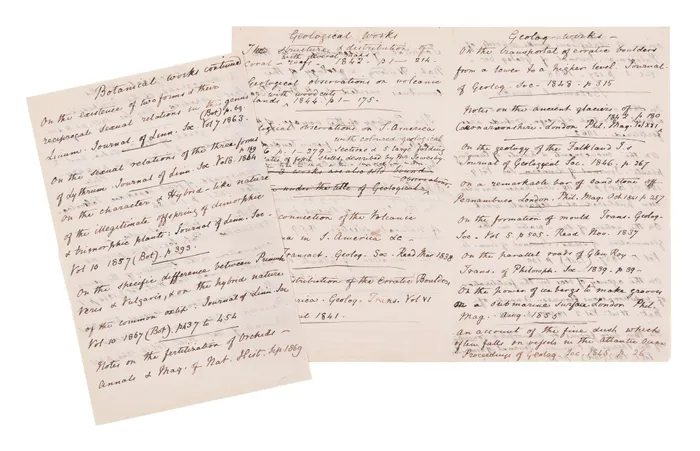 Botanical works continued
On the existence of two forms & their
reciprocal sexual relations in the genus
(Bot) p. 69
Linum. Journal. of Linn. Soc Vol 7 1863.
On the sexual relations of the three forms
p. 169
of Lythrum Journal of Linn. Soc Vol 8. 1864
On the character & Hybrid-like nature
of the illegitimate offspring of dimorphic
& trimorphic plants. Journal of Linn. Soc.
Vol 10 1867 (Bot). p 393.
On the specific difference between Primula
Veris & Vulgaris, & on the hybrid nature
of the common oxlip. Journal of Linn. Soc
Vol. 10. 1867 (Bot). p437 to 454
Notes on the fertilization of Orchids —
Annals & Mag. of Nat. Hist. Sep 1869
Geological Works
The structure & distribution of
with several maps
Coral-reefs. 1842. p 1 — 214.
Geological observations on volcanic
with woodcuts
lands 1844. p 1 — 175.
logical observations on S. America
with coloured geological
p. 1 — 279. Sections & 5 large folding
plates of fossil shells, described by Mr Sowerby
works are also bound
observations
under the title of Geological
connection of the Volcanic
in S. America &c —
Transact. Geolog. Soc. Read Mar 1838
distribution of the Erratic Boulders
erica. Geolog. Trans. Vol VI
1841.
Geolog works —
On the transportal of erratic boulders
from a lower to a higher level. Journal
of Geolog. Soc — 1848. p 315
Notes on the ancient glaciers of
1842. p 180
Caernarvonshire. London Phil. Mag.
On the geology of the Falkland Is
Journal of Geological Soc. 1846. p 267
On a remarkable bar of sandstone off
Pernambuco London. Phil. Mag. Oct 1841 p 257
On the formation of mould Trans. Geolog.
Soc. Vol 5. p 505. Read Nov. 1837
On the parallel roads of Glen Roy —
Trans. of Philosoph. Soc 1839. p 39 —
On the power of icebergs to make grooves
on a submarine surface London Phil.
Mag. Aug. 1855
An account of the fine dust which
often falls on vessels in the Atlantic Ocean
Proceedings of Geolog. Soc. 1845 p 26